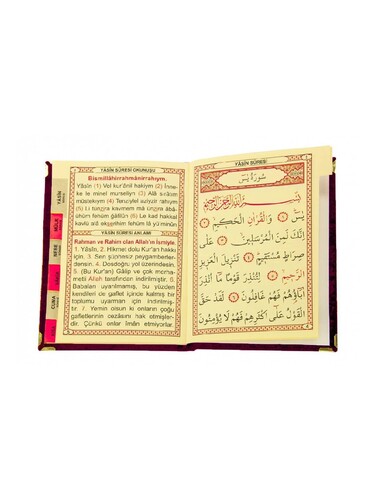 YÂSİN SÛRESİ OKUNUŞU
Bismillâhirrahmânirrahıym.
Yâsîn (1) Vel kur'ânil hakiym (2) İnne-
ke le minel murseliyn (3) Alâ sırâtım
müstekıym (4) Tenziylel aziyzir rahıym
(5) Li tünzira kavmem mâ ünzira âbâ-
ühüm fehüm ğâfilûn (6) Le kad hakkal
kavlü alâ ekserihim fehüm lâ yü'minûn
YÂSİN SÛRESİ ANLAMI
Rahman ve Rahim olan Allah'ın ismiyle.
1. Yâsîn, 2. Hikmet dolu Kur'an hakkı
için, 3. Sen şüphesiz peygamberler-
densin. 4. Dosdoğru yol üzerindesin.
5. (Bu Kur'an) Gâlip ve çok merha-
metli Allah tarafından indirilmiştir. 6.
Babaları uyarılmamış, bu yüzden
kendileri de gaflet içinde kalmış bir
toplumu uyarman için indirilmiş-
tir. 7. Yemin olsun ki onların çoğu
gafletlerinin cezasını hak etmişler-
dir. Çünkü onlar îman etmiyorlar
YÂSİN
MÜLK
NEBE
CUMA
YÂSİN SÛRESİ
سُورَةُ يٰسٓ
بِسْمِ اللّٰهِ الرَّحْمٰنِ الرَّحِيمِ
يٰسٓ ﴿١﴾ وَالْقُرْاٰنِ الْحَكِيمِ ﴿٢﴾
اِنَّكَ لَمِنَ الْمُرْسَلِينَ ﴿٣﴾ عَلٰى
صِرَاطٍ مُسْتَقِيمٍ ﴿٤﴾ تَنْزِيلَ الْعَزِيزِ
الرَّحِيمِ ﴿٥﴾ لِتُنْذِرَ قَوْمًا مَٓا اُنْذِرَ
اٰبَٓاؤُهُمْ فَهُمْ غَافِلُونَ ﴿٦﴾ لَقَدْ حَقَّ
الْقَوْلُ عَلٰٓى اَكْثَرِهِمْ فَهُمْ لَا يُؤْمِنُونَ